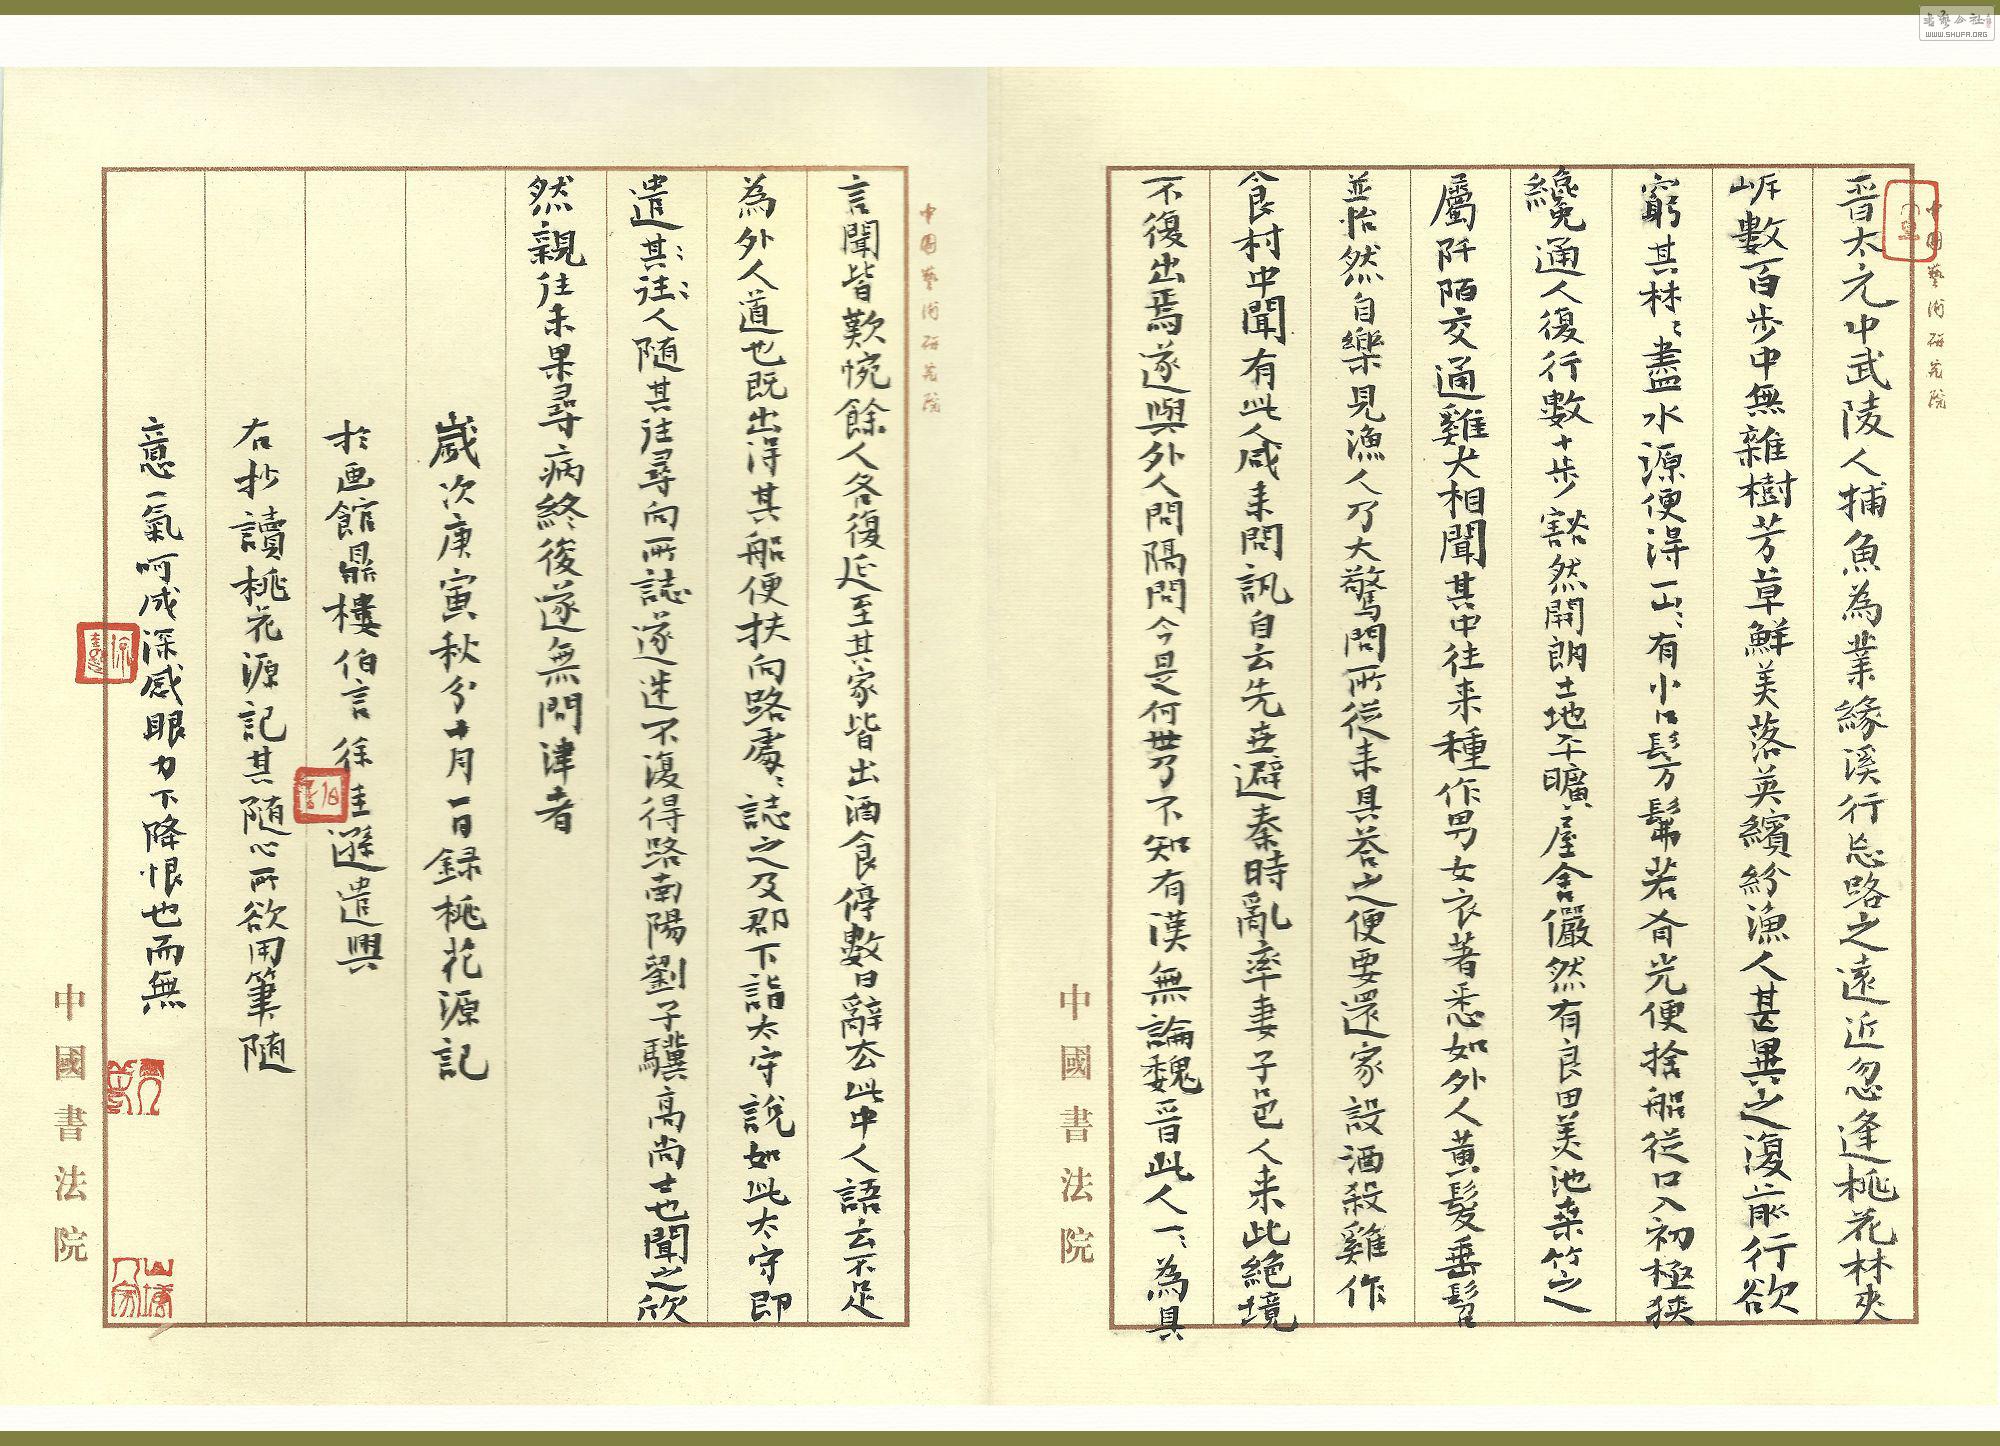 晉太元中武陵人捕魚為業緣溪行忘路之遠近忽逢桃花林夾
岸數百步中無雜樹芳草鮮美落英繽紛漁人甚異之復前行欲
窮其林〻盡水源便得一山〻有小口髣髴若有光便捨船從口入初極狹
纔通人復行數十步豁然開朗土地平曠屋舍儼然有良田美池桑竹之
屬阡陌交通雞犬相聞其中往来種作男女衣著悉如外人黄髮垂髫
並怡然自樂見漁人乃大驚問所從来具荅之便要還家設酒殺雞作
食村中聞有此人咸来問訊自云先世避秦時亂率妻子邑人来此絕境
不復出焉遂與外人問隔問今是何世乃不知有漢無論魏晉此人一〻為具
言聞皆歎惋餘人各復延至其家皆出酒食停數日辭去此中人語云不足
為外人道也既出得其船便扶向路處〻誌之及郡下詣太守說如此太守即
遣其〻往〻人随其往尋向所誌遂迷不復得路南陽劉子驥高尚士也聞之欣
然親往未果尋病終後遂無問津者
歲次庚寅秋分十月一日録桃花源記
於画館鼎樓伯言徐圭遜遣興
右抄讀桃花源記其随心所欲用筆随
意一氣呵成深感眼力下降恨也而無
中國藝術研究院
中國藝術研究院
中國書法院
中國書法院
书艺公社
WWW.SHUFA.ORG